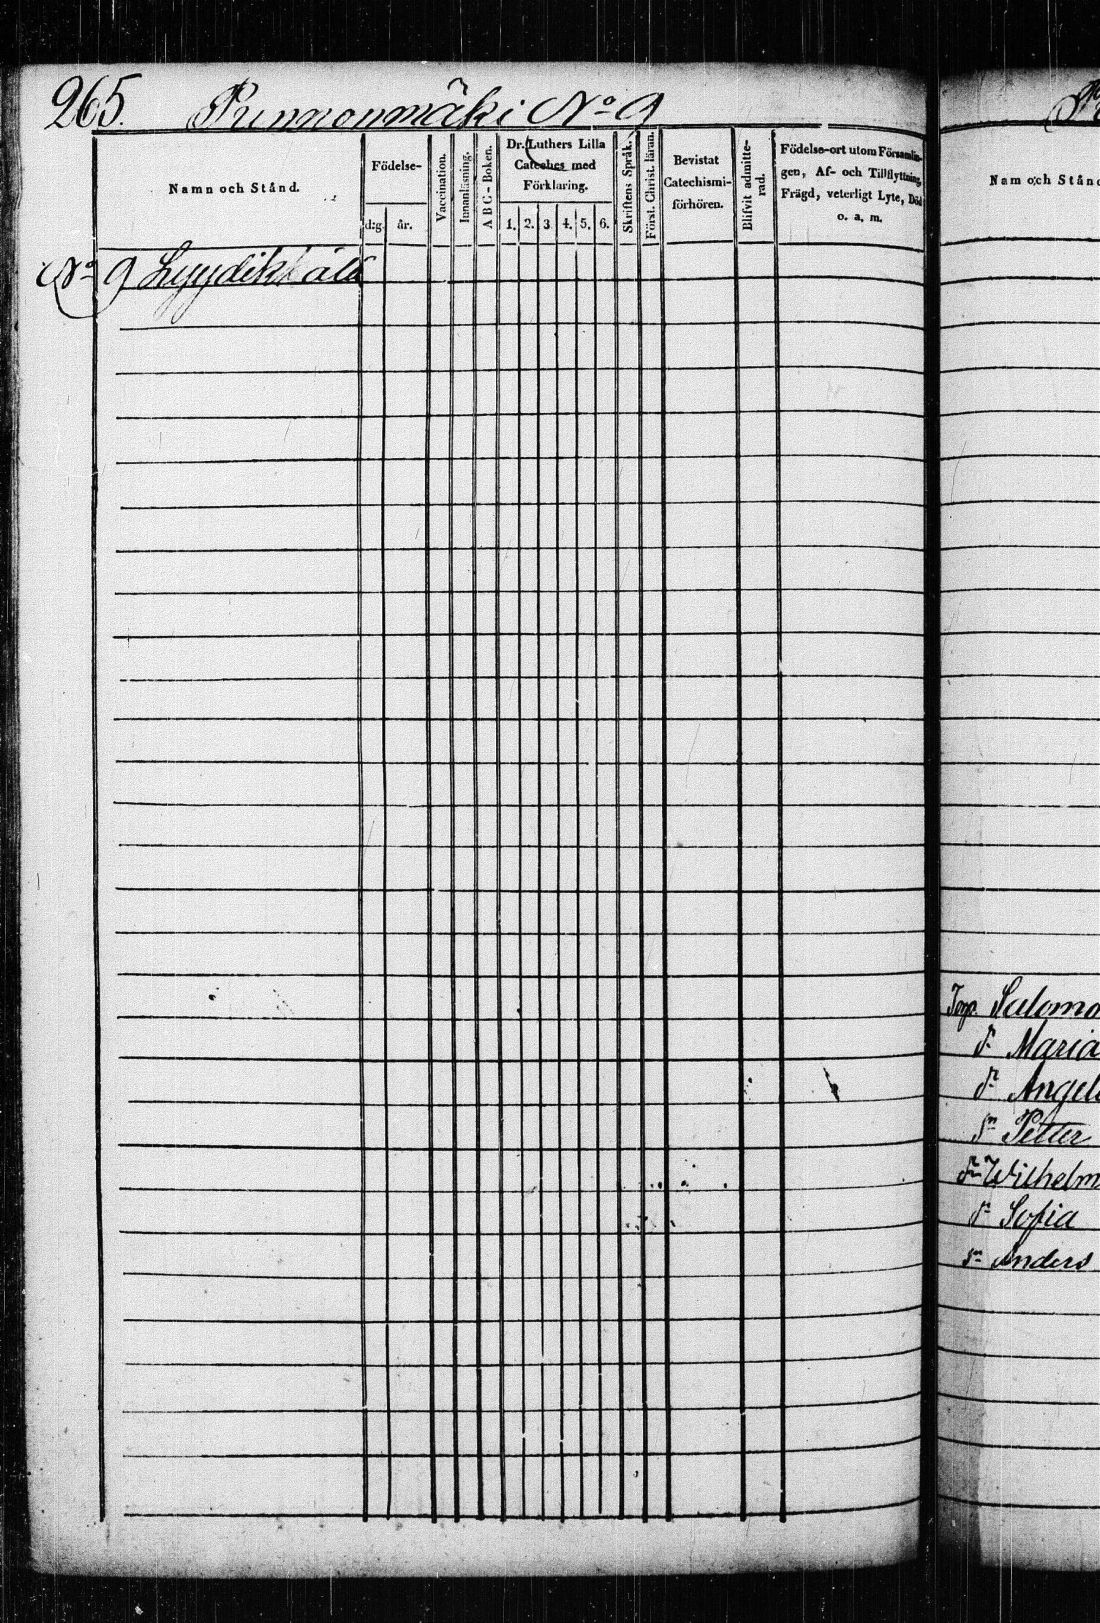 265. Punnonmäki No 9
Namn och Stånd.
Födelse-
d:g.
år.
Vaccination.
Innanläsning.
A B C - Boken.
Dr. Luthers Lilla
Cateches med
Förklaring.
1. 2. 3 4. 5. 6.
Skriftens Språk.
Först. Christ. läran.
Bevistat
Catechismi-
förhören.
Blifvit admitte-
rad.
Födelse-ort utom Församlin-
gen, Af- och Tillflyttning,
Frägd, veterligt Lyte, Död
o. a. m.
No 9
Nam och Stånd
Salomo
Maria
Petter
Wilhelm
Sofia
Anders